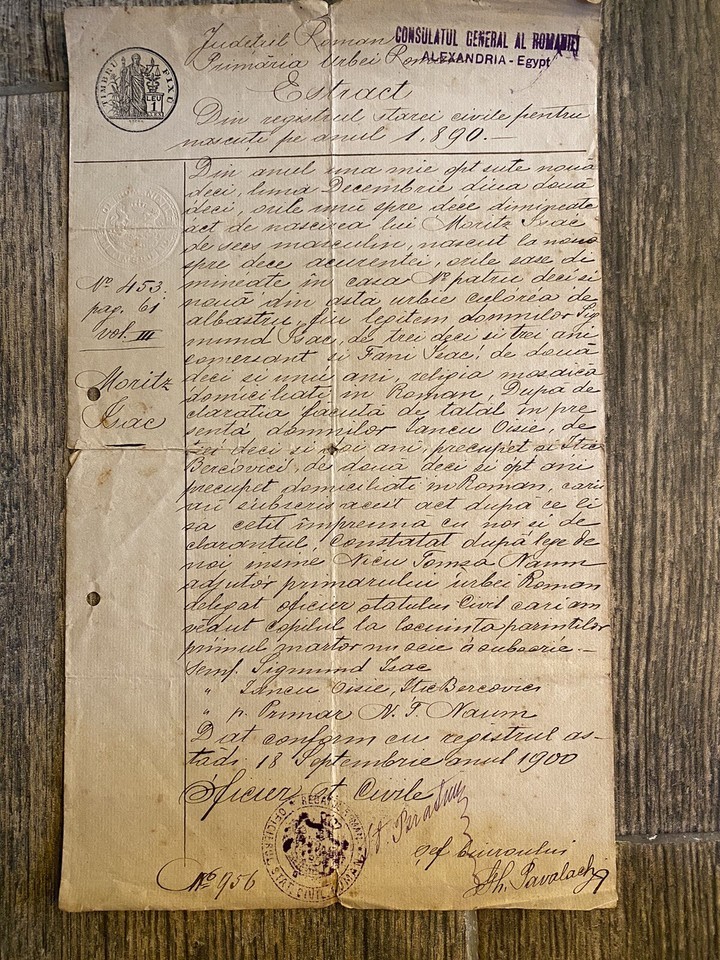 Județul Roman
Primăria Urbei Rom
CONSULATUL GENERAL AL ROMANIEI
ALEXANDRIA - Egypt
TIMBRU FIX
LEU 1
Estract
Din registrul starei civile pentru
născuți pe anul 1.890.—
Din anul una mie opt sute nouă
deci, luna Decembrie diua două
deci, orile unu spre dece dimineața
act de nascirea lui Moritz Isac
de secs masculin, nascut la nouă
spre dece a curentei, orile sase di
mineate in casa No patru deci si
nouă din asta urbie culorea de
albastru, fiu legitim domnilor Sig
mund Isac, de trei deci si trei ani
comersant si Fani Isac, de două
deci si unu ani, religia mosaică
domiciliati in Roman, După de
claratia facută de tatăl in pre
senta domnilor Iancu Oisie, de
trei deci si doi ani, precupet si Itic
Bercovici, de doua deci si opt ani
precupet domiciliati in Roman, cari
au subscris acest act după ce li
sa cetit impreuna cu noi si de
clarantul, Constatat după lege de
noi insine Nicu Tomsa Naum
adjutor primarului urbei Roman
delegat oficier statului Civil cari am
vedut copilul la locuinta parintilor
primul martor nu scie a subscrie.—
Semf. Sigmund Isac
" Iancu Oisie, Itic Bercovici
" p. Primar N. T. Naum
Dat conform cu registrul as-
tădi 18 Septembrie anul 1900
Oficier st Civile
No 453
pag. 61
vol. III
Moritz
Isac
OFICIERUL STAREI CIVILE ROMAN
șef biuroului
Gh. Pavalache
No 956